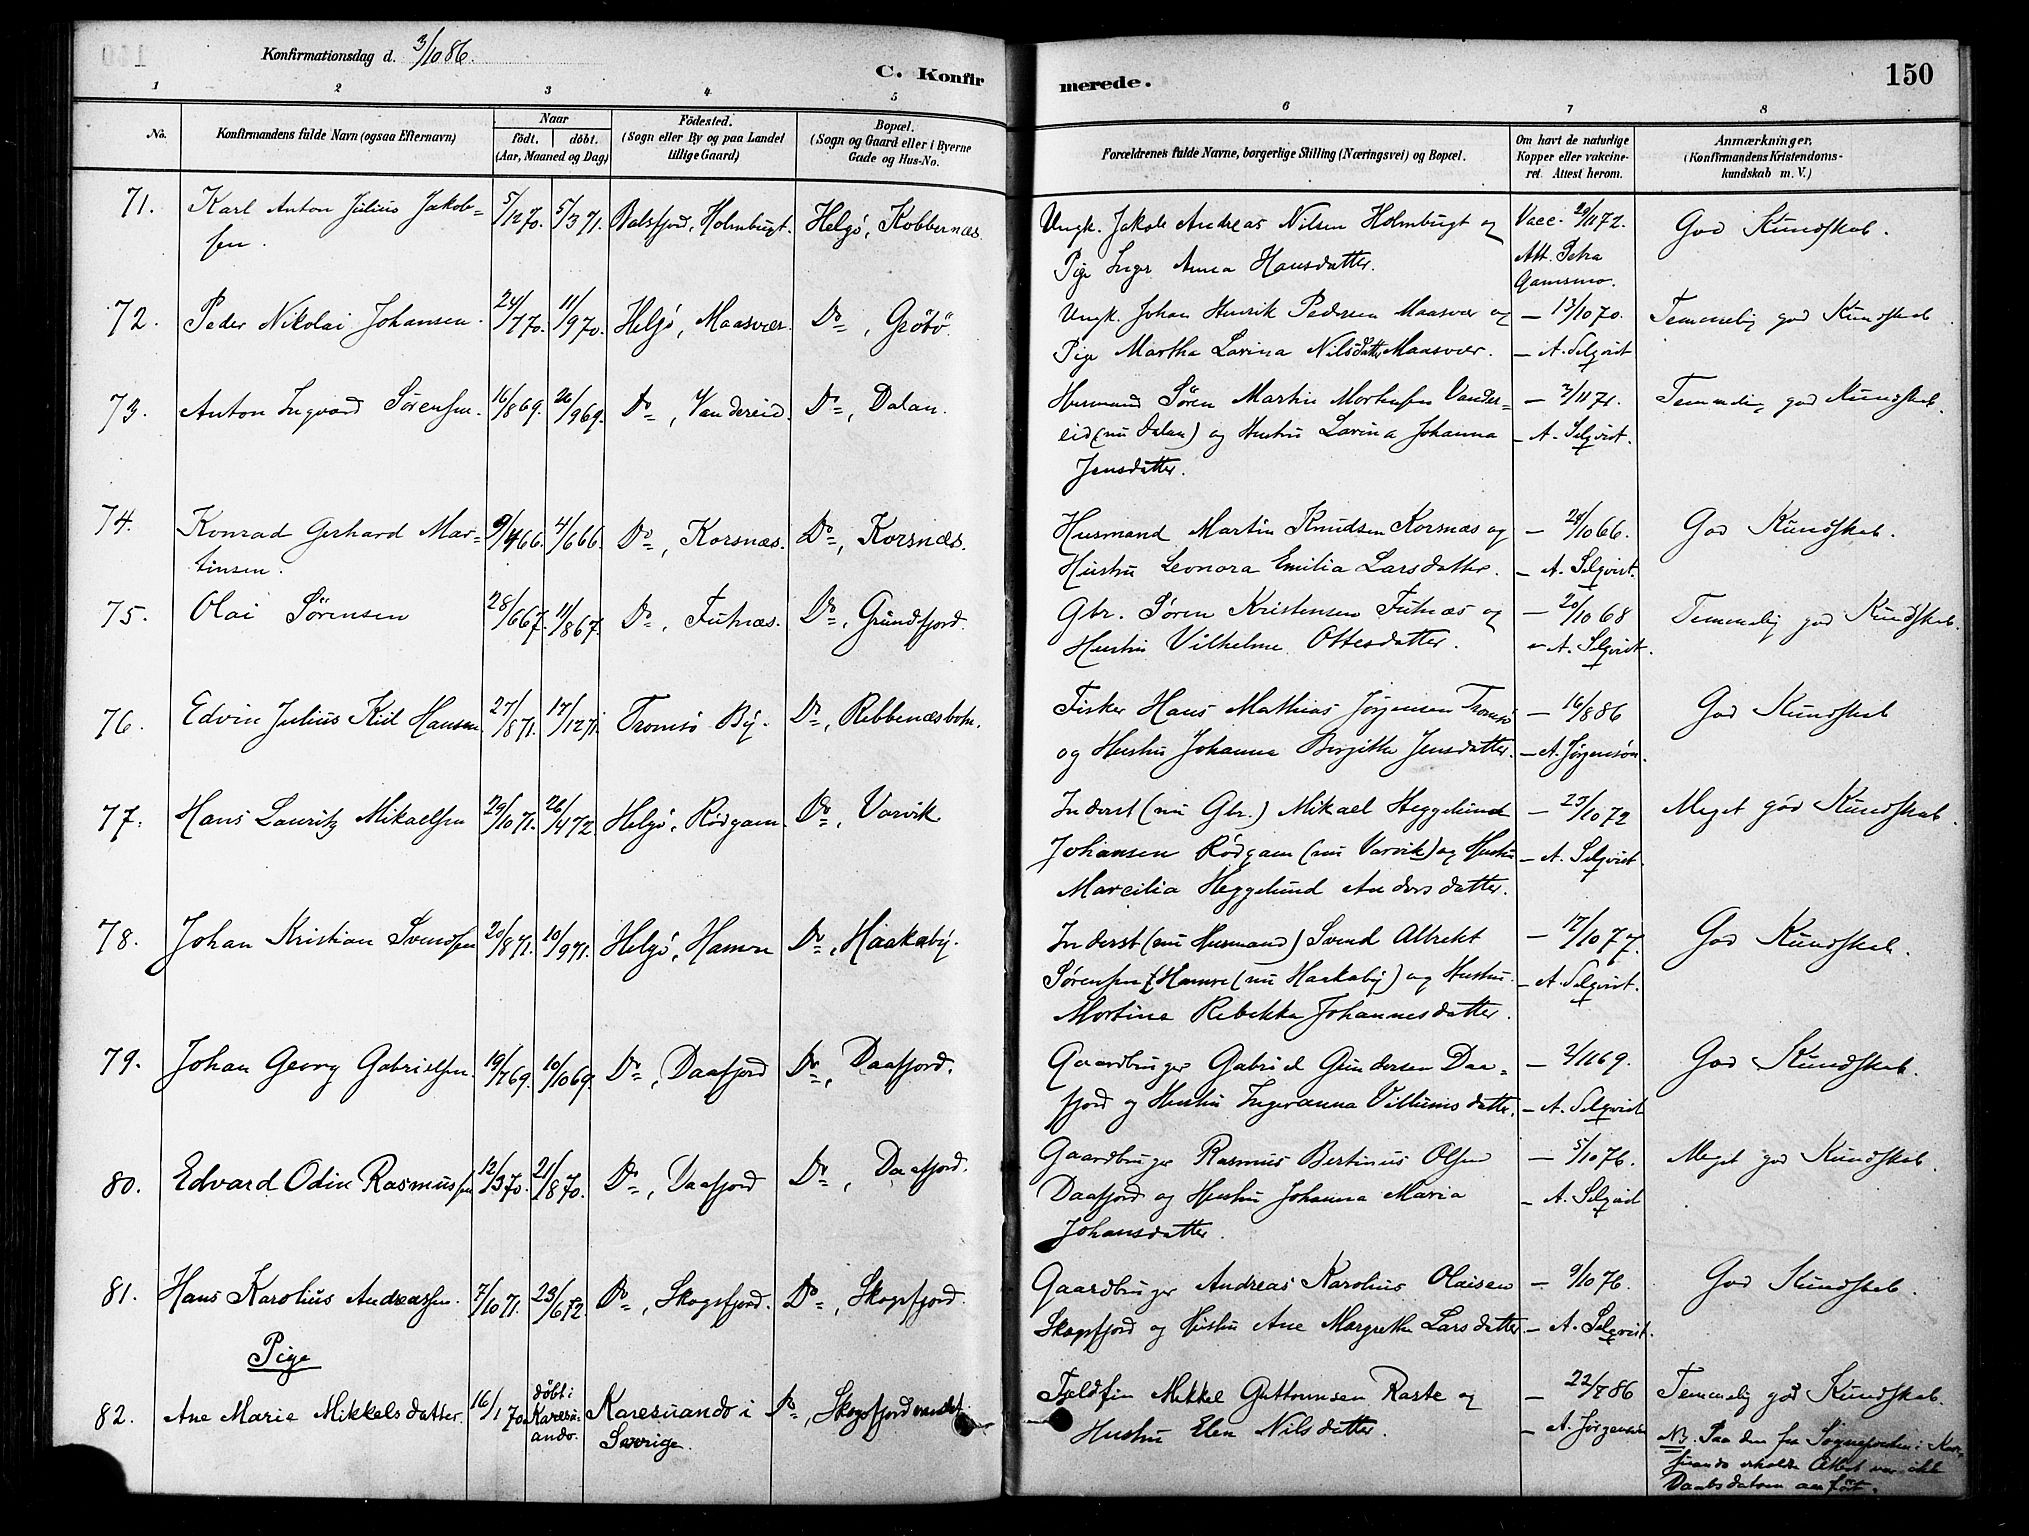 Konfirmationsdag d. 3/10 86.
C. Konfirmerede.
150
1 2 3 4 5 6 7 8
No.
Konfirmandens fulde Navn (ogsaa Efternavn)
Naar
født. døbt.
(Aar, Maaned og Dag)
Födested.
(Sogn eller By og paa Landet
tillige Gaard)
Bopæl.
(Sogn og Gaard eller i Byerne
Gade og Hus-No.
Forældrenes fulde Navne, borgerlige Stilling (Næringsvei) og Bopæl.
Om havt de naturlige
Kopper eller vakcine-
ret. Attest herom.
Anmærkninger.
(Konfirmandens Kristendoms-
kundskab m. V.)
71. Karl Anton Julius Jakob= 5/12 70. 5/3 71. Balsfjord, Holmbugt. Helgö, Kobbernæs. Ungk. Jakob Andreas Nilsen Holmbugt og Vacc. 29/11 72. God Kundskab.
sen. Pige Inger Anna Hansdatter. Att. Petra
Gamsmo.
72. Peder Nikolai Johansen. 24/7 70. 11/9 70. Helgö, Maasvær. Do, Grötö. Ungk. Johan Henrik Pedersen Maasvær og — 13/10 70. Temmelig god Kundskab
Pige Martha Lavina Nilsdatter Maasvær. — A. Selqvist
73. Anton Ingvard Sørensen. 16/8 69. 26/9 69. Do, Vandereid. Do, Dalan. Husmand Søren Martin Mortensen Vander= — 3/11 71. Temmelig god Kundskab.
eid (nu Dalan) og Hustru Lavina Johanna — A. Selqvist.
Jensdatter.
74. Konrad Gerhard Mar= 9/4 66. 4/6 66. Do, Korsnæs. Do, Korsnæs. Husmand Martin Knudsen Korsnæs og — 24/10 66. God Kundskab.
tinsen. Hustru Leonora Emilia Larsdatter. — A. Selqvist.
75. Olai Sørensen 28/6 67. 11/8 67. Do, Futnæs. Do, Grundfjord. Gbr. Sören Kristensen Futnæs og — 20/10 68 Temmelig god Kundskab.
Hustru Vilhelme Ottesdatter. — A. Selqvist.
76. Edvin Julius Kiil Hansen 27/8 71. 17/12 71. Tromsö By. Do, Ribbenæsbotn. Fisker Hans Mathias Jørgensen Tromsö — 16/8 86 God Kundskab
og Hustru Johanna Birgitte Jensdatter. — A. Jørgensøn.
77. Hans Lauritz Mikaelsen 29/10 71. 26/4 72. Helgö, Rödgam. Do, Varvik Inderst (nu Gbr.) Mikael Heggelund — 23/10 72 Meget god Kundskab.
Johansen Rödgam (nu Varvik) og Hustru — A. Selqvist.
Marcilia Heggelund Andersdatter.
78. Johan Kristian Svendsen 20/8 71. 10/9 71. Helgö, Hamre Do, Haakaby. Inderst (nu Husmand) Svend Albrekt — 17/10 77. God Kundskab.
Sørensen Hamre (nu Haakaby) og Hustru — A. Selqvist.
Mortine Rebekka Johannesdatter.
79. Johan Georg Gabrielsen. 19/7 69. 10/10 69. Do, Daafjord Do, Daafjord. Gaardbruger Gabriel Gundersen Daa= — 2/11 69. God Kundskab.
fjord og Hustru Ingeranna Villumsdatter. — A. Selqvist
80. Edvard Odin Rasmussen 12/3 70. 21/8 70. Do, Daafjord Do, Daafjord. Gaardbruger Rasmus Bertinus Olsen — 5/10 76. Meget god Kundskab.
Daafjord og Hustru Johanna Maria — A. Selqvist
Johansdatter.
81. Hans Karolius Andreassen. 7/10 71. 23/6 72. Do, Skogsfjord. Do, Skogsfjord. Gaardbruger Andreas Karolius Olaisen — 9/10 76. God Kundskab.
Skogsfjord og Hustru Ane Margrethe Larsdatter — A. Selqvist.
Pige
82. Ane Marie Mikkelsdatter. 16/1 70. döbt i Karesuando. Karesuando i Sverige. Do, Skogsfjordvandet. Fjeldfin Mikkel Guttormsen Raste og — 22/7 86 Temmelig god Kundskab.
Hustru Elen Nilsdatter. — A. Jørgensøn
NB. Paa den fra Sognepresten i Kare=
suando erholdte Attest var ikke
Daabsdatoen anført.